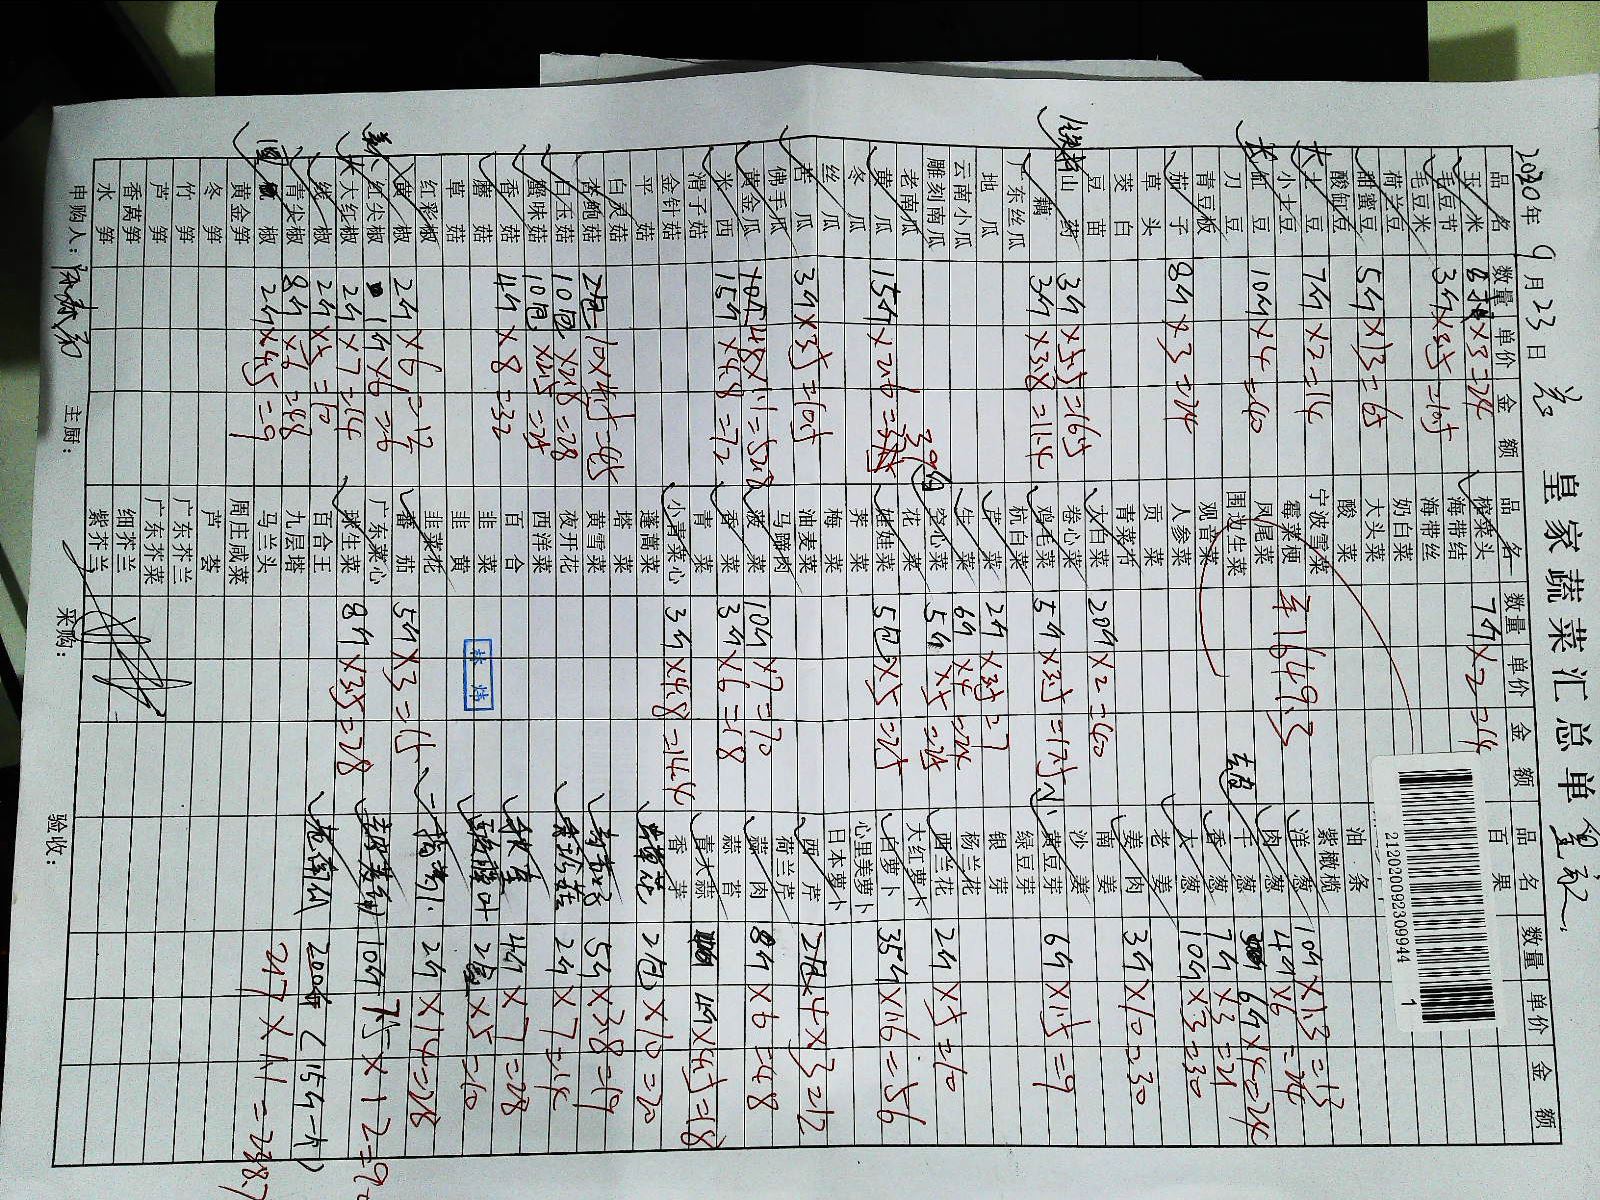 2020年 9月 23日
皇家蔬菜汇总单
212020092309944
1
品名 数量 单价 金额
玉米 8斤 ×3=24
毛豆节
毛豆米 3斤 ×3.5=10.5
荷兰豆
甜蜜豆 5斤 ×13=65
酸豇豆
土豆 7斤 ×2=14
小土豆
豇豆 10斤 ×4=40
刀豆
青豆板
茄子 8斤 ×3=24
草头
茭白
豆苗
山药 3斤 ×5.5=16.5
藕 3斤 ×3.8=11.4
广东丝瓜
地瓜
云南小瓜
雕刻南瓜
老南瓜
黄瓜 15斤 ×2.6=39
冬瓜
丝瓜
苦瓜 3斤 ×3.5=10.5
佛手瓜
黄金瓜 ×1.1=52.8
西米 15斤 ×4.8=72
滑子菇
金针菇
平菇
白灵菇
杏鲍菇 2包=10×4.5=45
白玉菇 10包 ×2.8=28
蟹味菇 10包 ×2.5=25
香菇 4斤 ×8=32
蘑菇
草菇
红彩椒
黄椒 2斤 ×6=12
红尖椒 1斤 ×6=6
大红椒 2斤 ×7=14
线椒 2斤 ×5=10
青尖椒 8斤 ×6=48
椒 2斤 ×4.5=9
黄金笋
冬笋
竹笋
芦笋
香莴笋
水笋
品名 数量 单价 金额
榨菜头 7斤 ×2=14
海带结
海带丝
奶白菜
大头菜
酸菜
宁波雪菜
霉菜梗
凤尾菜
围边生菜
观音菜
人参菜
贡菜
青菜秆
大白菜 20斤 ×2=40
卷心菜
鸡毛菜 5斤 ×3.5=17.5
杭白菜
芹菜 2斤 ×3.5=7
生菜 6斤 ×4=24
空心菜 5斤 ×5=25
花菜
娃娃菜 5包 ×5=25
荠菜
梅菜
油麦菜
马蹄肉
菠菜 10斤 ×7=70
香菜 3斤 ×6=18
青菜
小青菜心 3斤 ×4.8=14.4
蓬蒿菜
塔菜
黄雪菜
夜开花
西洋菜
百合
韭菜
韭黄
韭菜花
番茄 5斤 ×3=15
广东菜心
球生菜 8斤 ×3.5=28
百合王
九层塔
马兰头
周庄咸菜
芦荟
广东芥兰
广东芥菜
细芥兰
紫芥兰
1649.3
品名 数量 单价 金额
百果
油条
紫橄榄
洋葱 10斤 ×1.3=13
肉葱 4斤 ×6=24
干葱 6斤 ×4=24
香葱 7斤 ×3=21
大葱 10斤 ×3=30
老姜
姜肉 3斤 ×10=30
南姜
沙姜
黄豆芽 6斤 ×1.5=9
绿豆芽
银芽
杨兰花
西兰花 2斤 ×5=10
大红萝卜
白萝卜 35斤 ×1.6=56
心里美萝卜
日本萝卜
西芹 ×3=12
荷兰芹
蒜肉 8斤 ×6=48
蒜苔
青大蒜 4斤 ×4.5=18
香芽
2包 ×10=20
5斤 ×3.8=19
2斤 ×7=14
4斤 ×7=28
×5=10
2斤 ×14=28
10斤 7.5×12=90
200斤 (15斤一个)
217×1.1=238.7
申购人：
主厨：
采购：
验收：